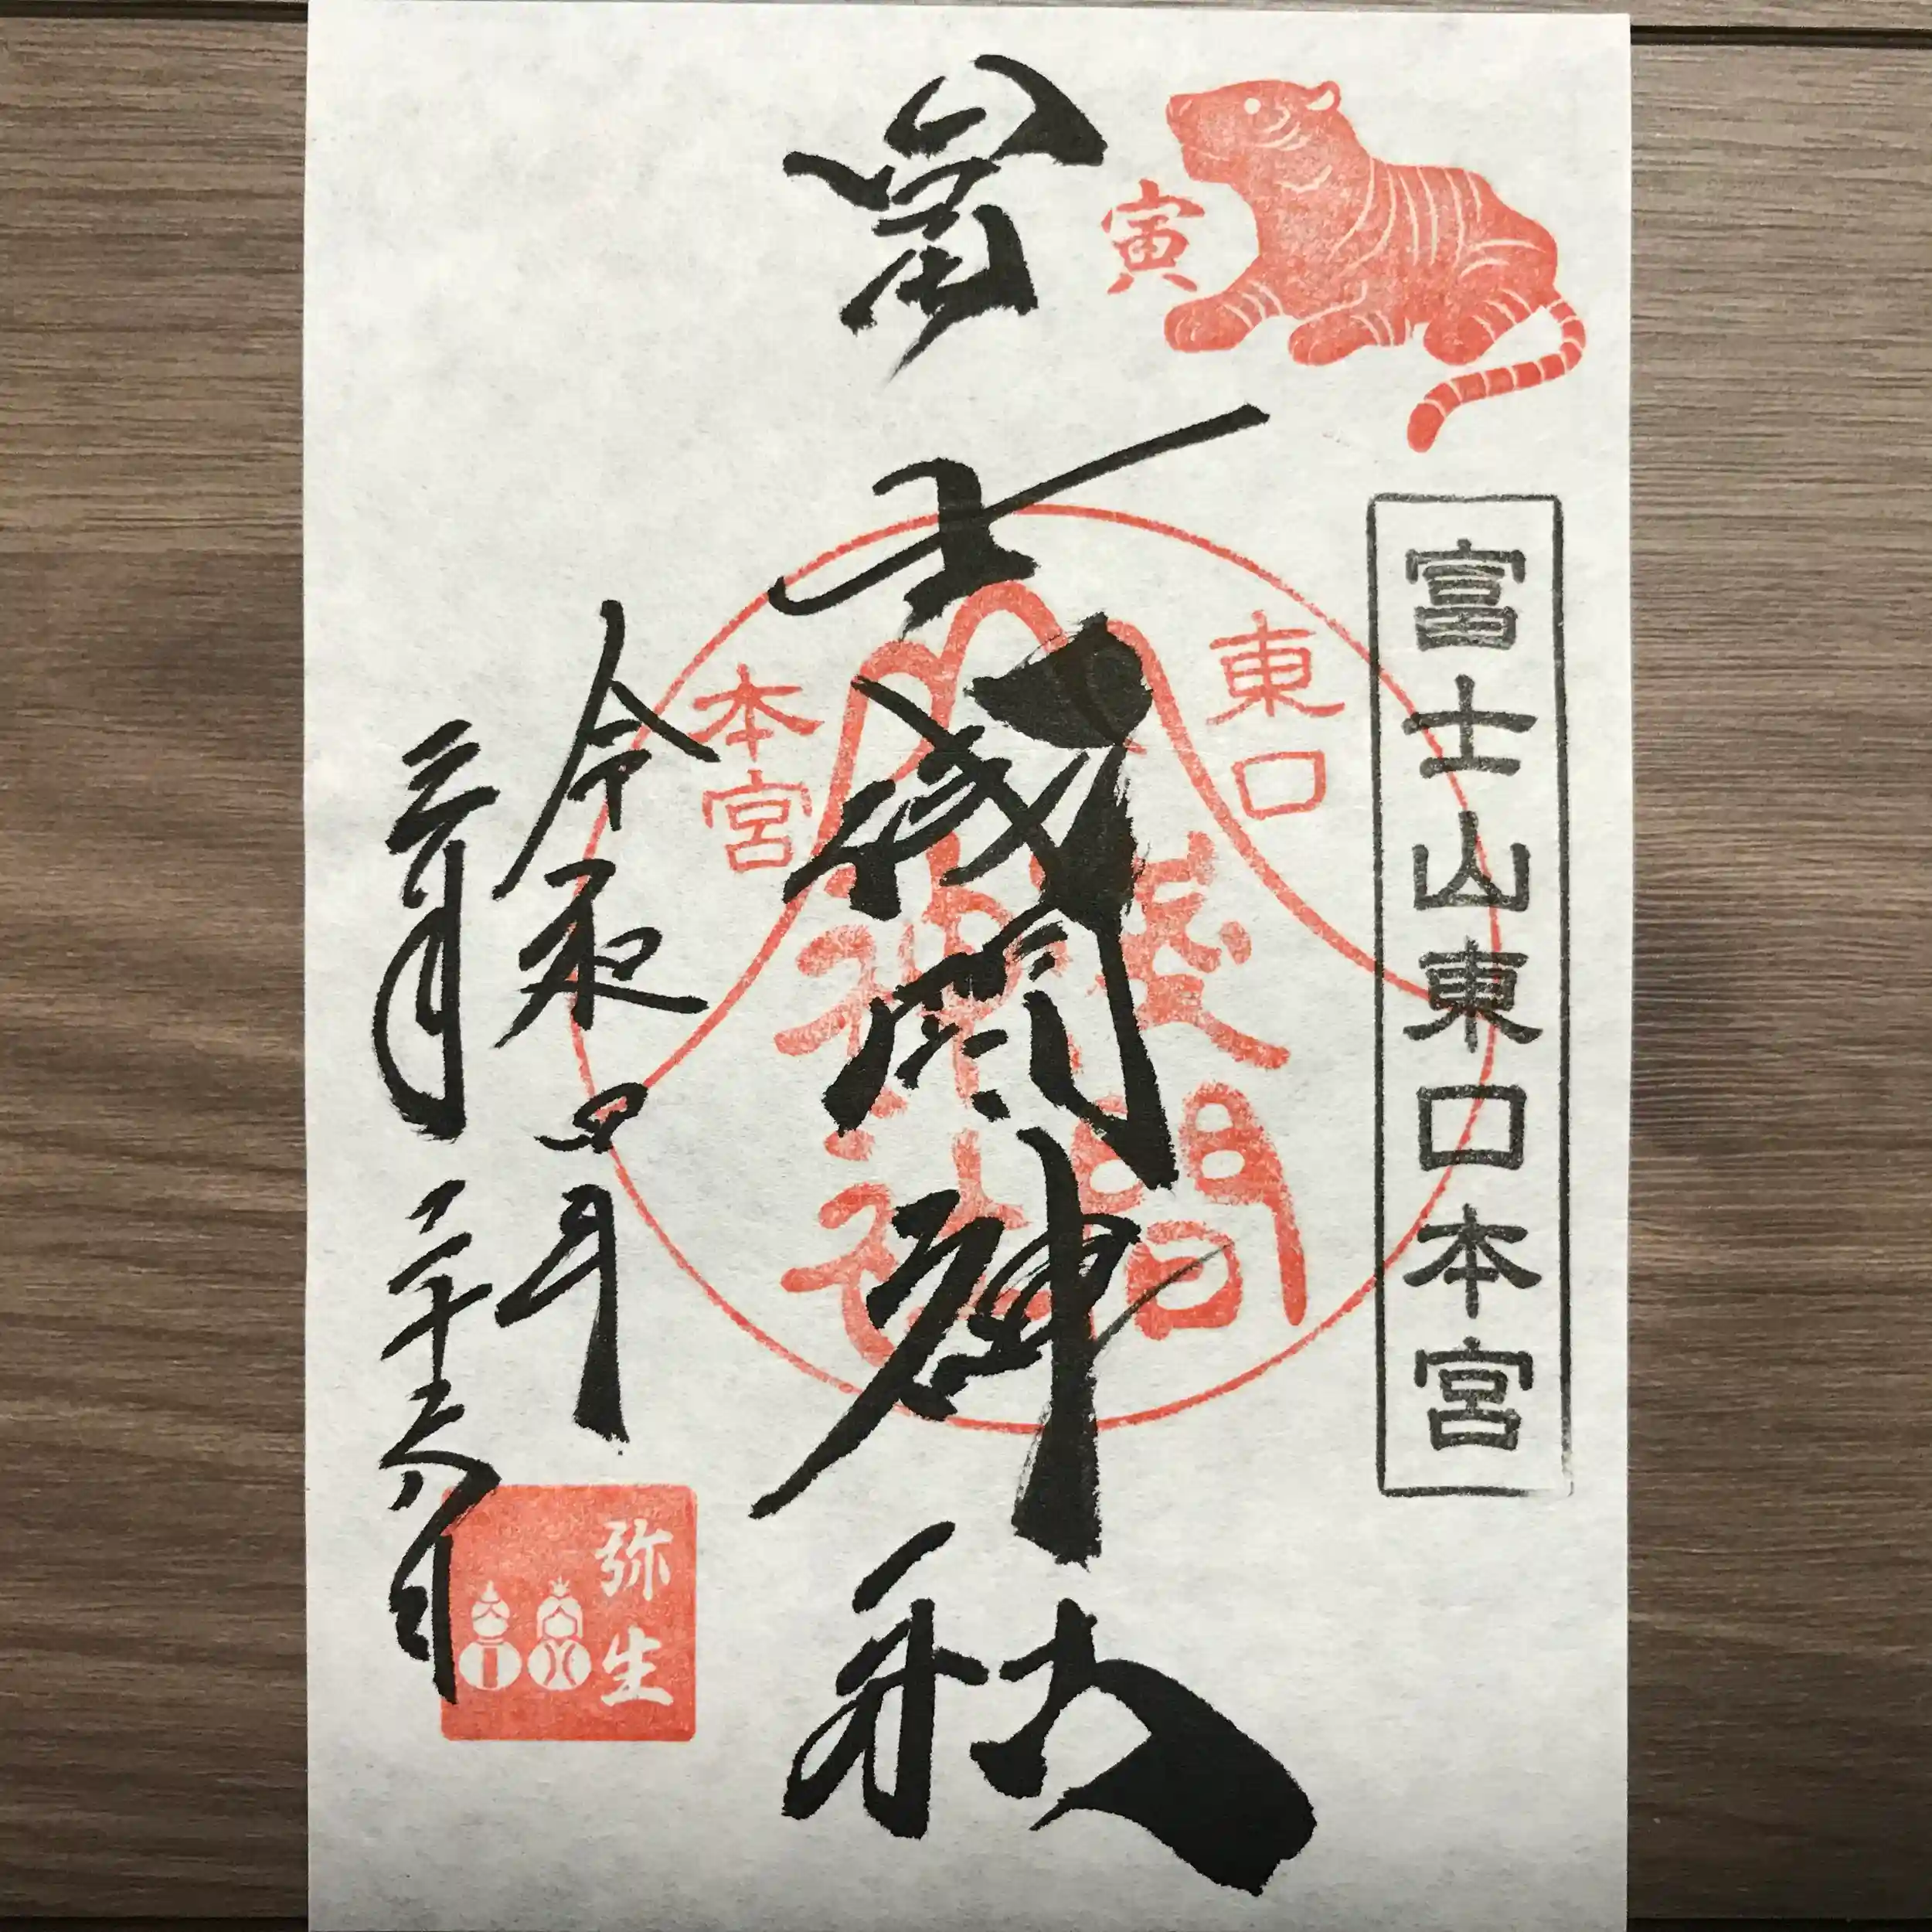 寅
富士山東口本宮
冨士浅間神社
東口
本宮
浅間
神社
令和四年
三月二十六日
弥生